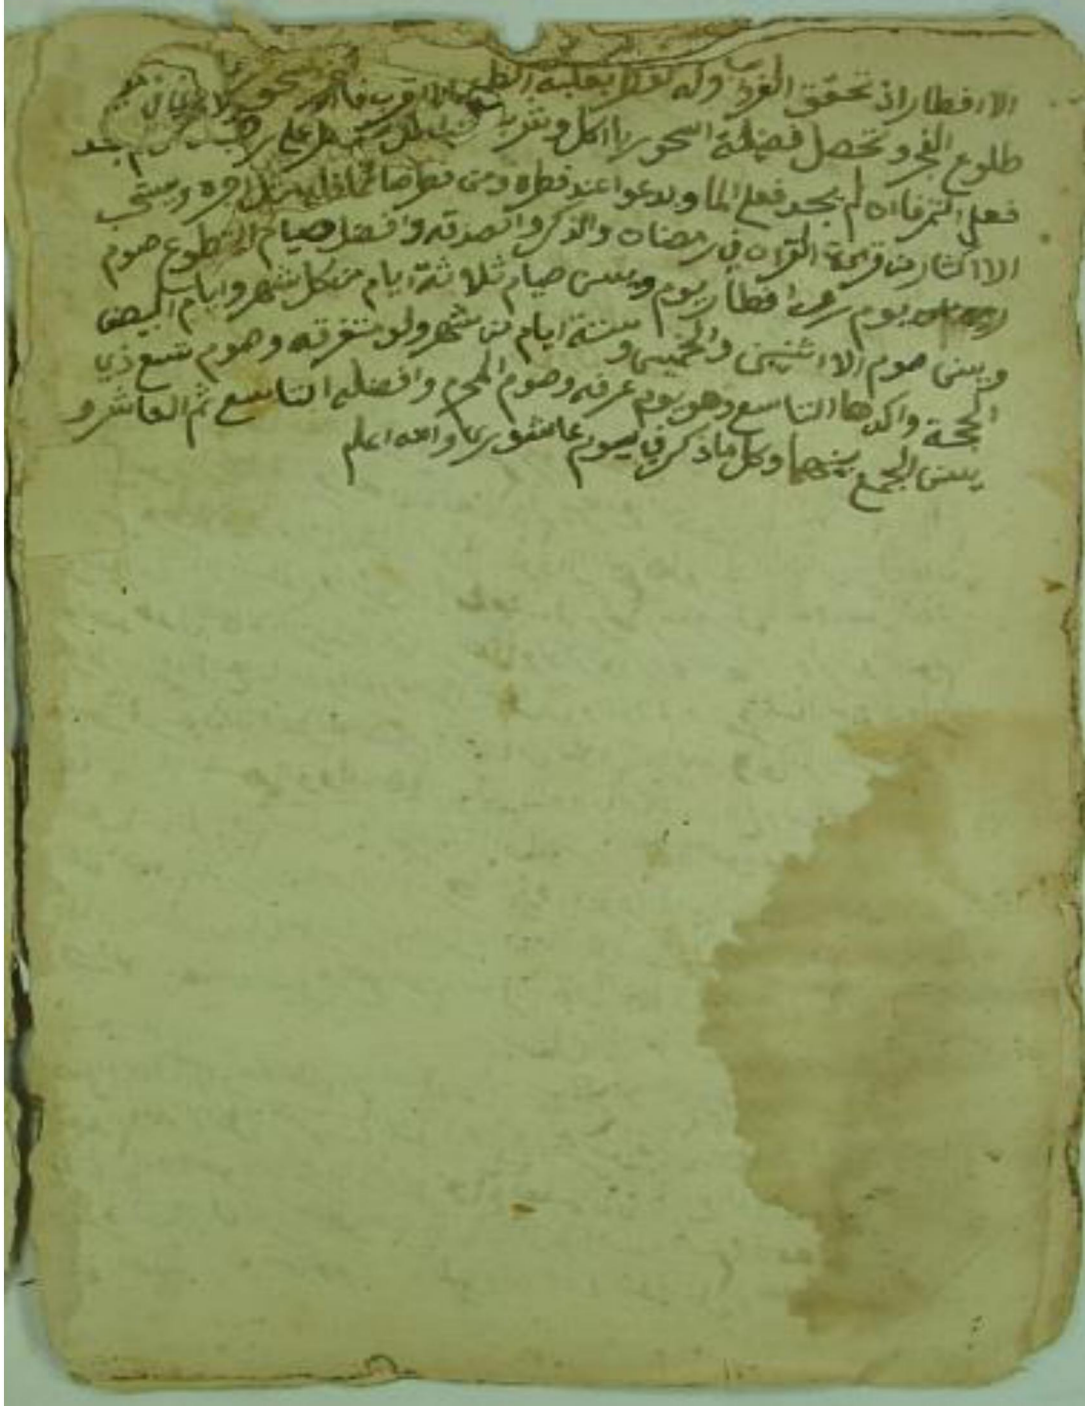 الافطار اذ تحقق الغروب وله الفطر بغلبة الظن
طلوع الفجر وتحصل فضيلة السحور باكل وشرب
فعلى التمر فان لم يجد فعلى الما ويدعوا عند فطره ومن فطر صائما فله مثل اجره ويستحب
الاكثار من قراءة القران في رمضان والذكر والصدقه وافضل صيام التطوع صوم
يوم وافطار يوم ويسن صيام ثلاثة ايام من كل شهر وايام البيض
ويسن صوم الاثنين والخميس وستة ايام من شهر ولو متفرقه وصوم تسع ذي
الحجة واكدها التاسع وهو يوم عرفه وصوم المحرم وافضله التاسع ثم العاشر و
يسن الجمع بينهما وكل ما ذكر في يوم عاشورى والله اعلم